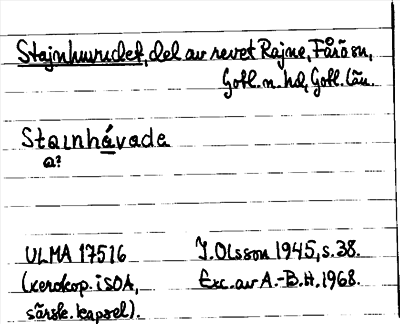 Stajnhuvudet, del av revet Rajne, Fårö sn,
Gotl. n. hd, Gotl. län.
Stainhávade
a?
ULMA 17516 J. Olsson 1945, s. 38.
(xerokop. i SOA, Exc. av A.-B.H. 1968.
särsk. kapsel).